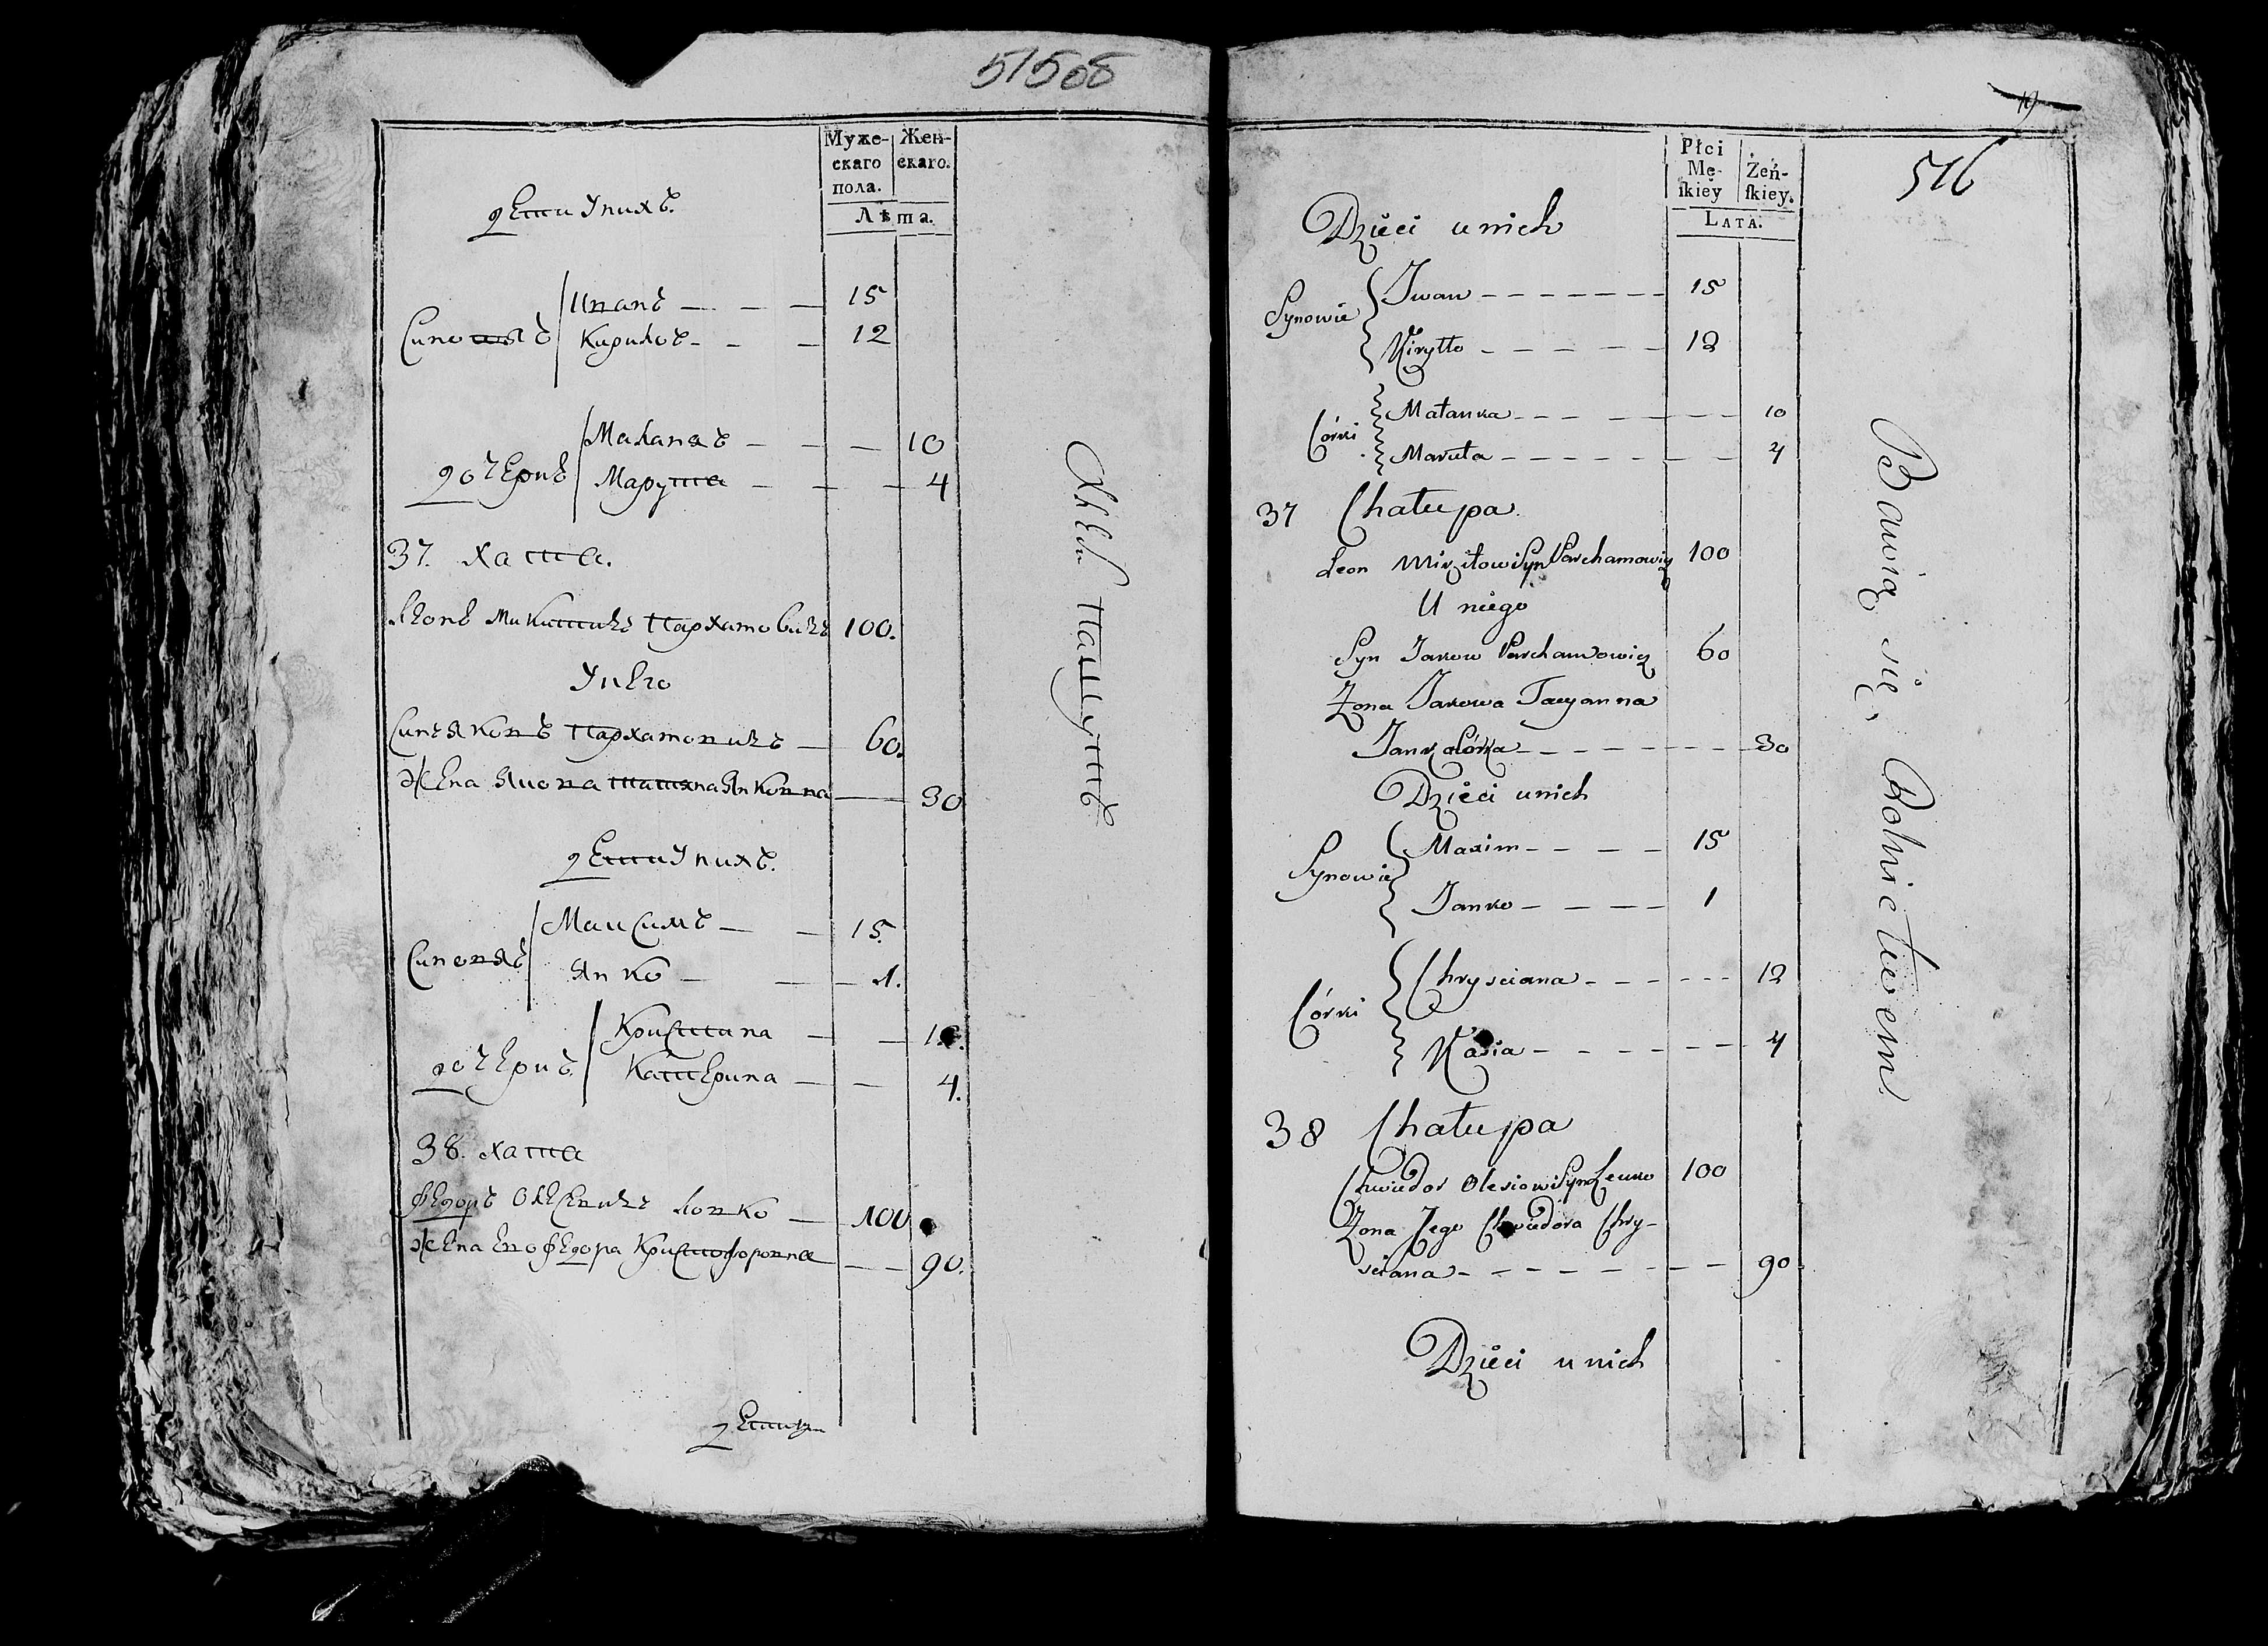 515об
Муже-
скаго
пола.
Жен-
скаго.
Лѣта.
дети У нихъ.
Синовя
Иванъ — — — 15
Кирило — — — 12
дочери
Маланя — — — 10
Марута — — — 4
37. хата.
Леонъ Микитичъ Пархамовичъ 100.
У него
Синъ Яковъ Пархамовичъ — 60.
Жена Якова татяна Янковна — 30
дети У нихъ.
Синовя
Максимъ — — 15.
Янко — — 1.
дочери
Кристина — —
Катерина — — 4.
38. хата
Федоръ Олесевичъ Левко — 100
Жена его Федора Кристофоровна — 90.
дети у н
Хлебо Пашутъ
19
516
Płci
Mę-
ſkiéy
Żeń-
ſkiey.
LATA.
Dzieci u nich
Synowie
Iwan — — — 15
Kiryłło — — — 12
Córki
Małanka — — — 10
Maruta — — — 4
37 Chałupa
Leon Mikitow Syn Parchamowicz 100
U niego
Syn Jakow Parchamowicz 60
Żona Jakowa Tacyanna
Janka Córka — — — 30
Dzieci u nich
Synowie
Maxim — — — 15
Janko — — — 1
Córki
Chrysciana — — — 12
Kasia — — — 4
38 Chałupa
Chwiedor Olesiow Syn Lewko 100
Żona Jego Chwiedora Chry-
sciana — — — 90
Dzieci u nich
Bawią się, Rolnictwem.